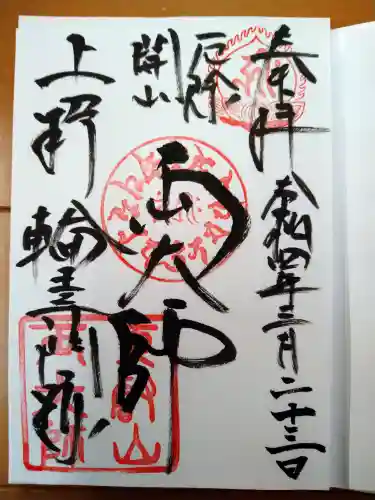 奉拝
令和四年三月二十三日
厄除
開山
両大師
上野 輪王寺門跡